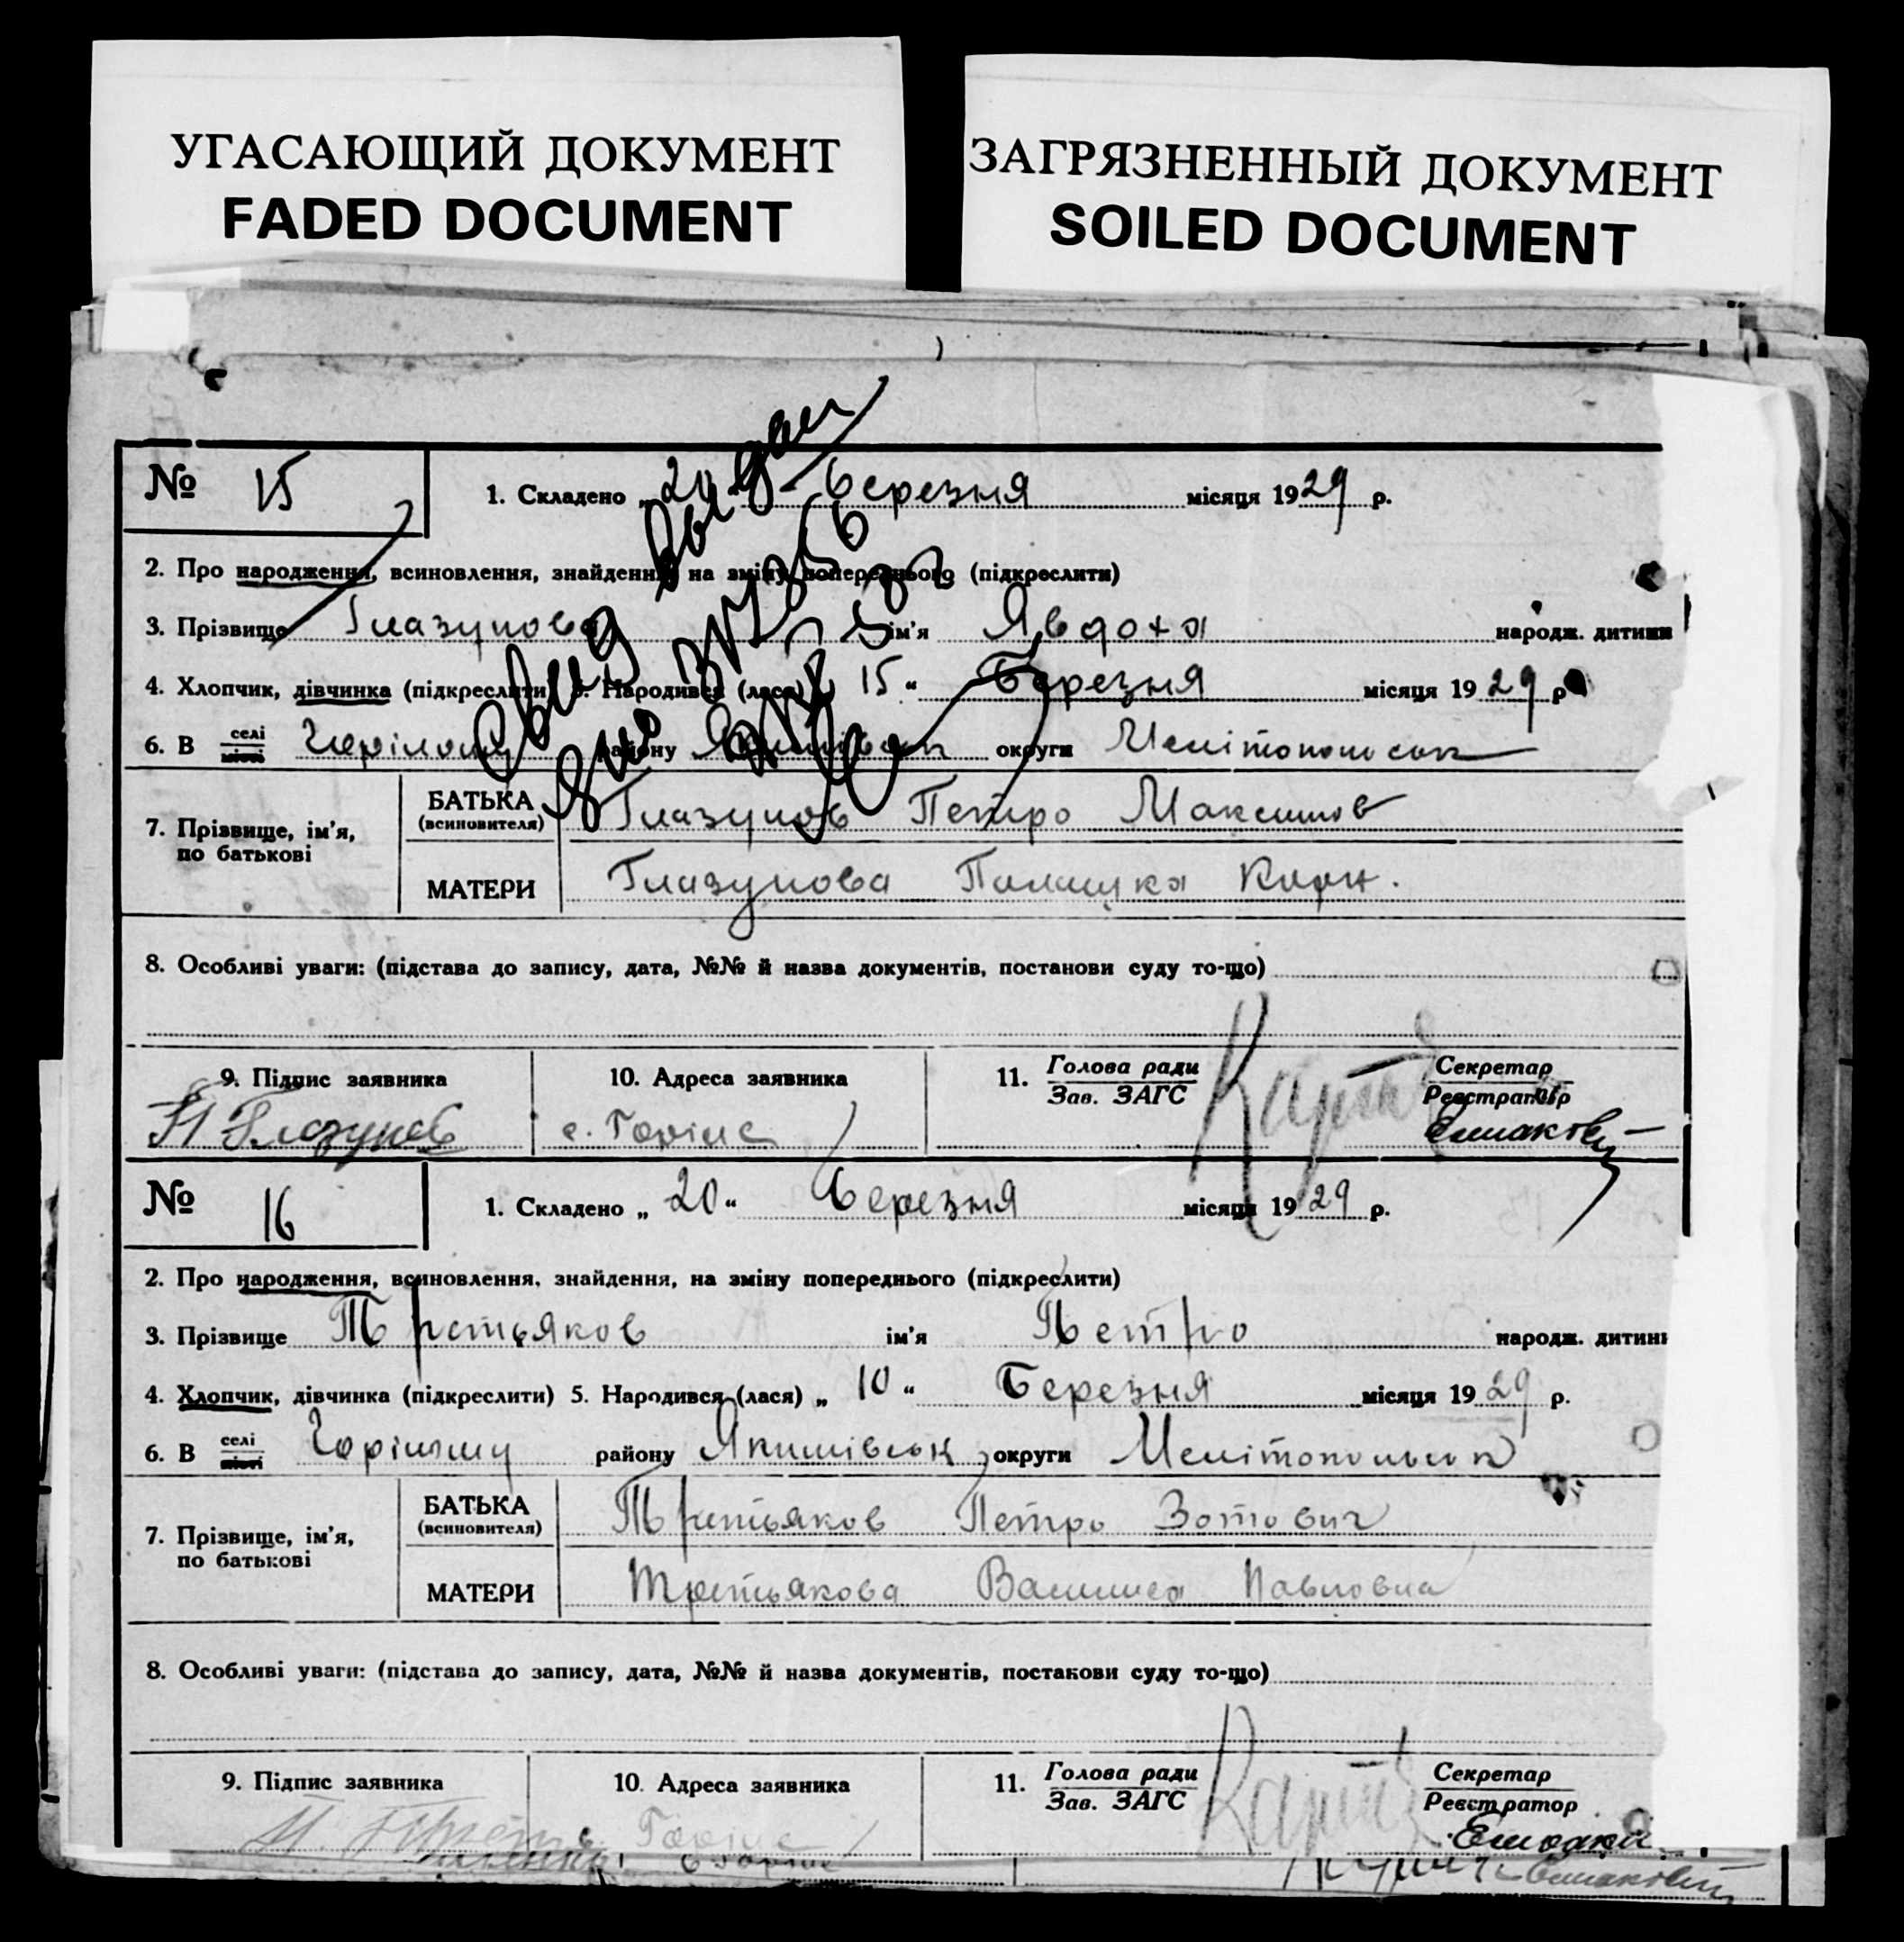 УГАСАЮЩИЙ ДОКУМЕНТ
FADED DOCUMENT
ЗАГРЯЗНЕННЫЙ ДОКУМЕНТ
SOILED DOCUMENT
№ 15
1. Складено „20“ Березня місяця 1929 р.
2. Про народження, всиновлення, знайдення, на зміну попереднього (підкреслити)
3. Прізвище Глазунова ім'я Явдоха народж. дитини
4. Хлопчик, дівчинка (підкреслити) 5. Народився (лася) „15“ Березня місяця 1929 р.
6. В селі місті району округи
7. Прізвище, ім'я, по батькові
БАТЬКА (всиновителя) Глазунов Петро Максимов
МАТЕРИ Глазунова
8. Особливі уваги: (підстава до запису, дата, №№ й назва документів, постанови суду то-що)
9. Підпис заявника
10. Адреса заявника
11. Голова ради Зав. ЗАГС
Секретар Реєстратор
П Глазунов
№ 16
1. Складено „20“ Березня місяця 1929 р.
2. Про народження, всиновлення, знайдення, на зміну попереднього (підкреслити)
3. Прізвище Третьяков ім'я Петро народж. дитини
4. Хлопчик, дівчинка (підкреслити) 5. Народився (лася) „10“ Березня місяця 1929 р.
6. В селі місті Горілому району Якимівськ округи Мелітопольськ
7. Прізвище, ім'я, по батькові
БАТЬКА (всиновителя) Третьяков Петро Зотович
МАТЕРИ Третьякова Василиса Павловна
8. Особливі уваги: (підстава до запису, дата, №№ й назва документів, постанови суду то-що)
9. Підпис заявника
10. Адреса заявника
11. Голова ради Зав. ЗАГС
Секретар Реєстратор